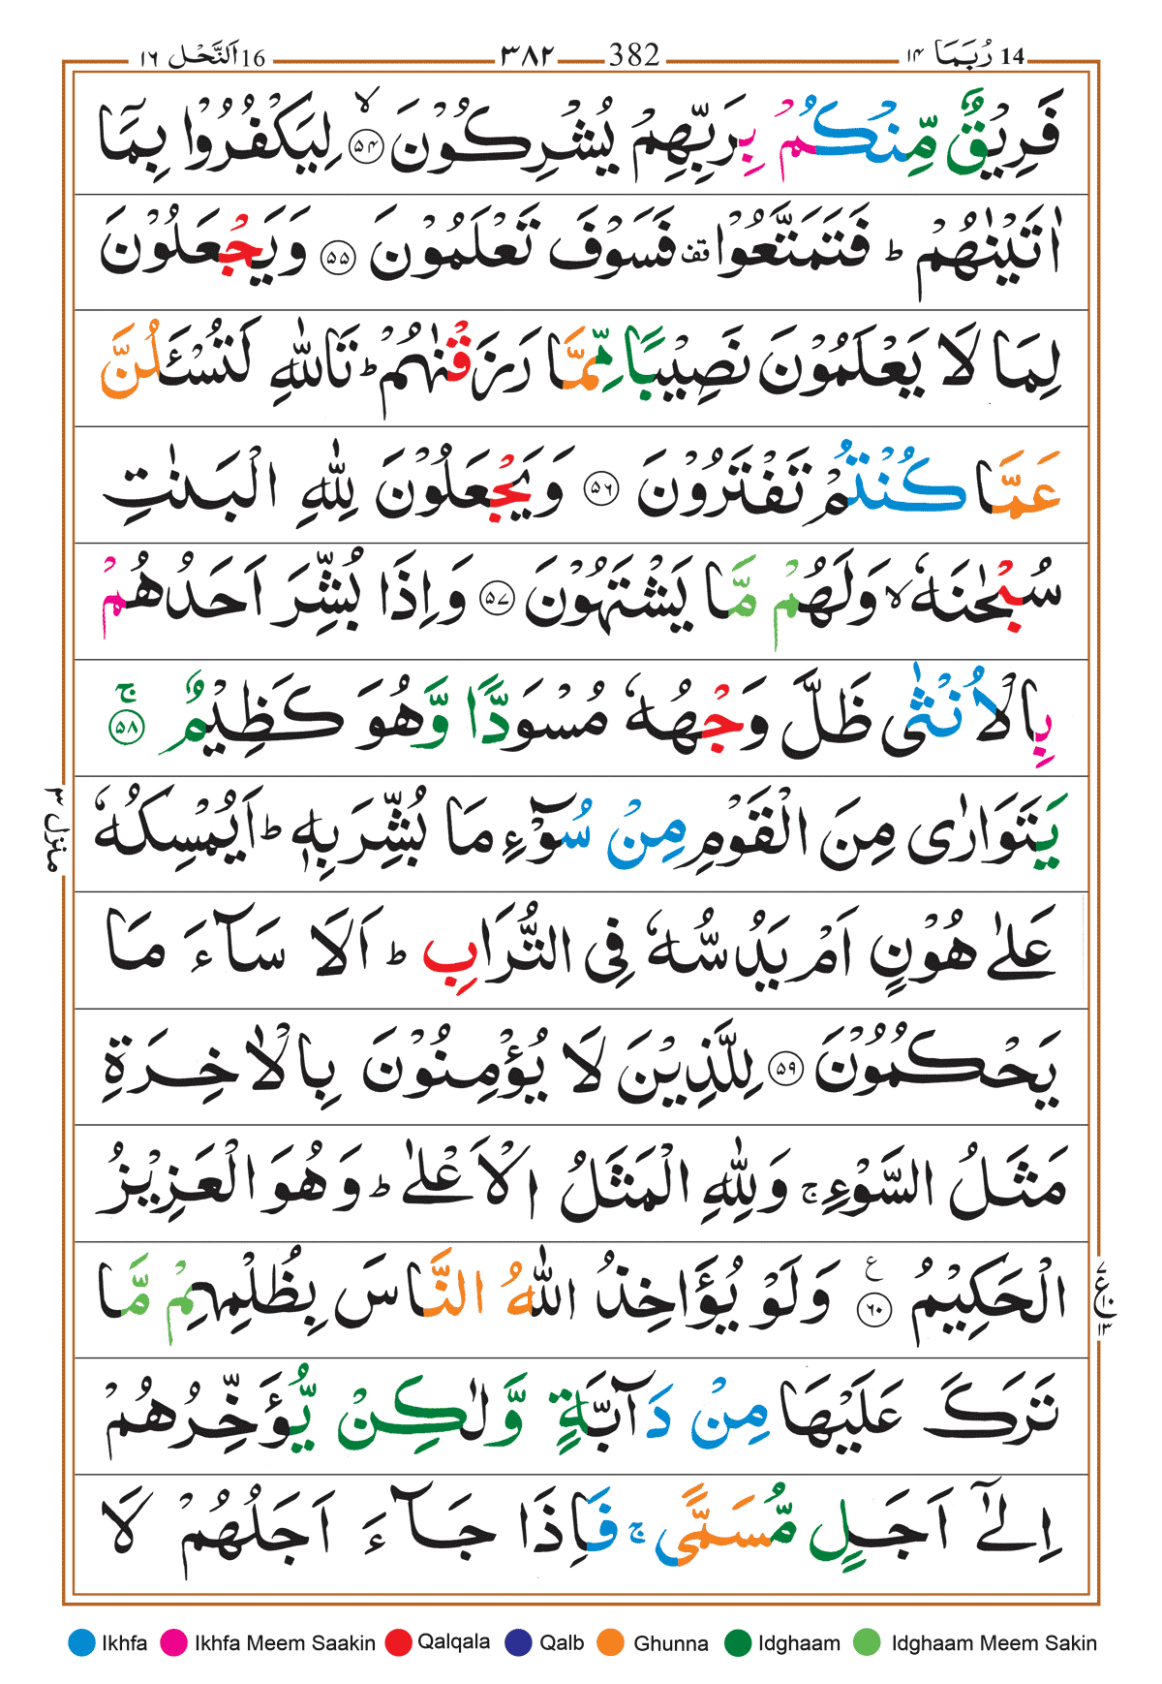 14 رُبَمَا ١٤ 382 ٣٨٢ 16 اَلنَّحْل ١٦
فَرِيْقٌ مِّنْكُمْ بِرَبِّهِمْ يُشْرِكُوْنَ ۙ﴿۵۴﴾ لِيَكْفُرُوْا بِمَاۤ
اٰتَيْنٰهُمْ ؕ فَتَمَتَّعُوْا قف فَسَوْفَ تَعْلَمُوْنَ ﴿۵۵﴾ وَيَجْعَلُوْنَ
لِمَا لَا يَعْلَمُوْنَ نَصِيْبًا مِّمَّا رَزَقْنٰهُمْ ؕ تَاللّٰهِ لَتُسْـَٔلُنَّ
عَمَّا كُنْتُمْ تَفْتَرُوْنَ ﴿۵۶﴾ وَيَجْعَلُوْنَ لِلّٰهِ الْبَنٰتِ
سُبْحٰنَهٗ ۙ وَلَهُمْ مَّا يَشْتَهُوْنَ ﴿۵۷﴾ وَاِذَا بُشِّرَ اَحَدُهُمْ
بِالْاُنْثٰى ظَلَّ وَجْهُهٗ مُسْوَدًّا وَّهُوَ كَظِيْمٌ ۚ﴿۵۸﴾
يَتَوَارٰى مِنَ الْقَوْمِ مِنْ سُوْٓءِ مَا بُشِّرَ بِهٖ ؕ اَيُمْسِكُهٗ
عَلٰى هُوْنٍ اَمْ يَدُسُّهٗ فِى التُّرَابِ ؕ اَلَا سَآءَ مَا
يَحْكُمُوْنَ ﴿۵۹﴾ لِلَّذِيْنَ لَا يُؤْمِنُوْنَ بِالْاٰخِرَةِ
مَثَلُ السَّوْءِ ۚ وَلِلّٰهِ الْمَثَلُ الْاَعْلٰى ؕ وَهُوَ الْعَزِيْزُ
الْحَكِيْمُ ﴿۶۰﴾ ع وَلَوْ يُؤَاخِذُ اللّٰهُ النَّاسَ بِظُلْمِهِمْ مَّا
تَرَكَ عَلَيْهَا مِنْ دَآبَّةٍ وَّلٰكِنْ يُّؤَخِّرُهُمْ
اِلٰٓى اَجَلٍ مُّسَمًّى ۚ فَاِذَا جَآءَ اَجَلُهُمْ لَا
منزل ٣
٧ ع ١٠ ١٣
Ikhfa Ikhfa Meem Saakin Qalqala Qalb Ghunna Idghaam Idghaam Meem Sakin